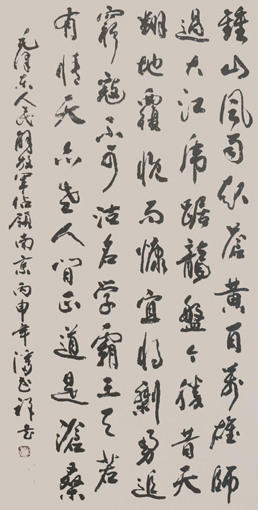 鍾山風雨起蒼黃百萬雄師
過大江虎踞龍盤今勝昔天
翻地覆慨而慷宜將剩勇追
窮寇不可沽名學霸王天若
有情天亦老人間正道是滄桑
毛澤東人民解放軍佔領南京丙申年